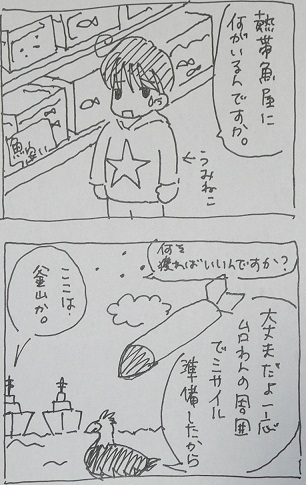 熱帯魚屋に
何がいるんですか。
うみねこ
何を
獲ればいいんですか?
大丈夫だよ一応
ムロわんの周囲
でミサイル
準備したから
ここは
釜山か。